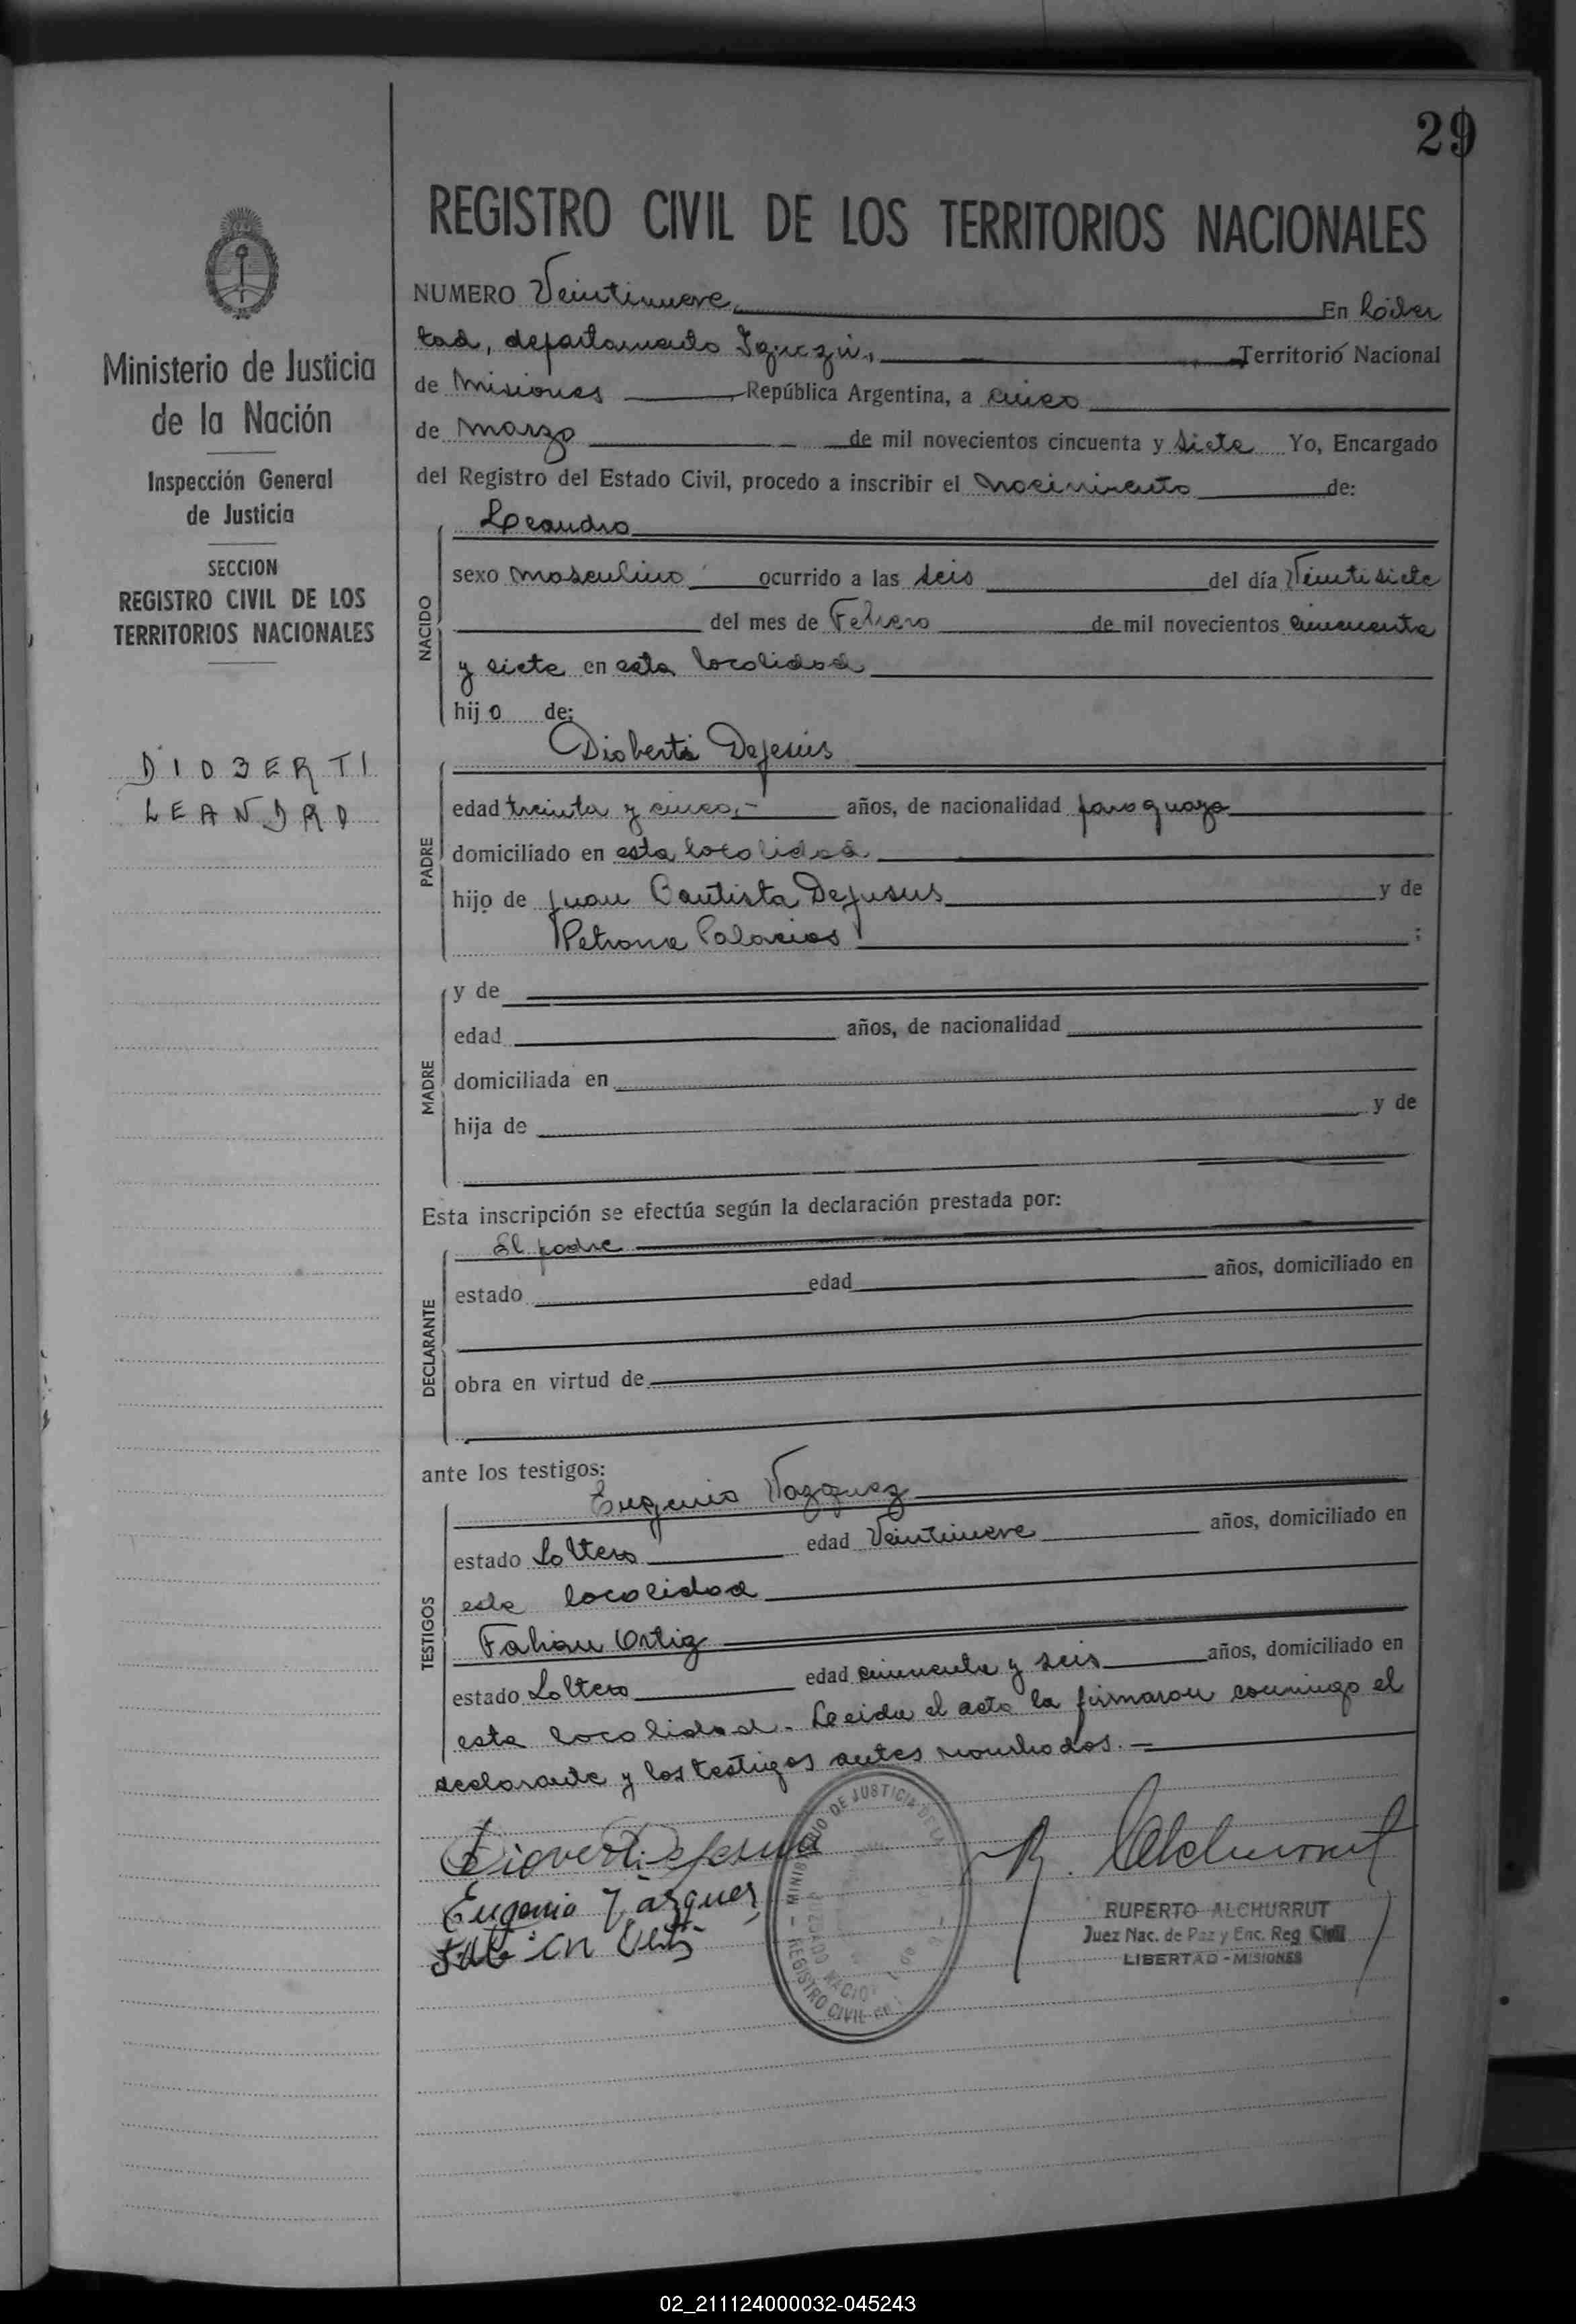 29
REGISTRO CIVIL DE LOS TERRITORIOS NACIONALES
Ministerio de Justicia
de la Nación
Inspección General
de Justicia
SECCION
REGISTRO CIVIL DE LOS
TERRITORIOS NACIONALES
DIOBERTI
LEANDRO
NUMERO Veintinueve En Liber
tad, departamento Iguazú, Territorio Nacional
de Misiones República Argentina, a cinco
de Marzo de mil novecientos cincuenta y siete Yo, Encargado
del Registro del Estado Civil, procedo a inscribir el nacimiento de:
NACIDO
Leandro
sexo masculino ocurrido a las seis del día Veintisiete
del mes de Febrero de mil novecientos cincuenta
y siete en esta localidad
hijo de:
PADRE
Dioberti Dejesús
edad treinta y cinco.- años, de nacionalidad paraguaya
domiciliado en esta localidad
hijo de Juan Bautista Dejesus y de
Petrona Palacios ;
MADRE
y de
edad años, de nacionalidad
domiciliada en
hija de y de
Esta inscripción se efectúa según la declaración prestada por:
DECLARANTE
El padre
estado edad años, domiciliado en
obra en virtud de
ante los testigos:
TESTIGOS
Eugenio Vazquez
estado Soltero edad Veintinueve años, domiciliado en
esta localidad
Fabian Ortiz
estado Soltero edad cincuenta y seis años, domiciliado en
esta localidad. Leida el acta la firmaron conmigo el
declarante y los testigos antes nombrados.
Dioverti Dejesus
Eugenio Vázquez
R. Alchurrut
MINISTERIO DE JUSTICIA DE LA
REGISTRO CIVIL
RUPERTO ALCHURRUT
Juez Nac. de Paz y Enc. Reg Civil
LIBERTAD - MISIONES
02_211124000032-045243